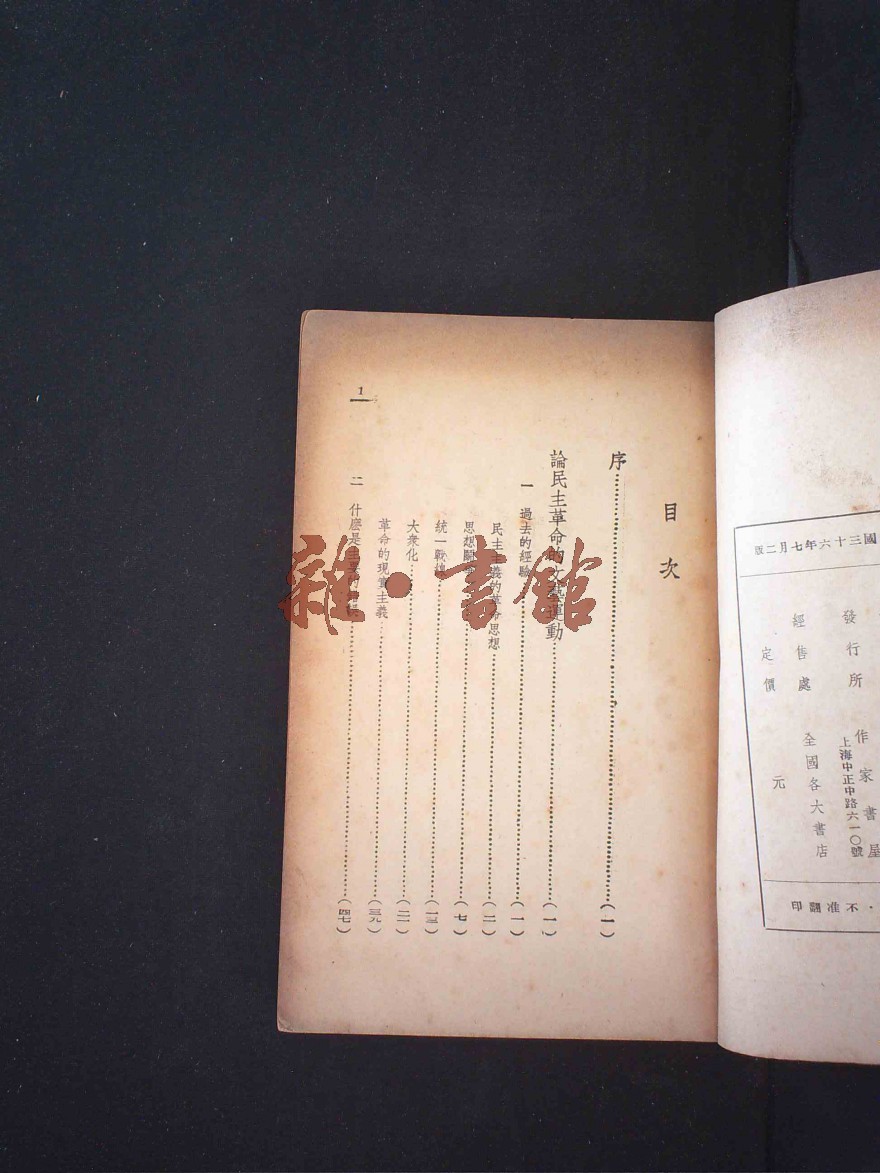 國三十六年七月二版
發行所 作家書屋
上海中正中路六一〇號
經售處 全國各大書店
定價 元
・不准翻印
目次
序……(一)
論民主革命的文藝運動……(一)
一 過去的經驗……(一)
民主主義的革命思想……(二)
思想……(七)
統一戰線……(一三)
大衆化……(二一)
革命的現實主義……(三九)
二 什麽是主要的……(四七)
1
雜・書館